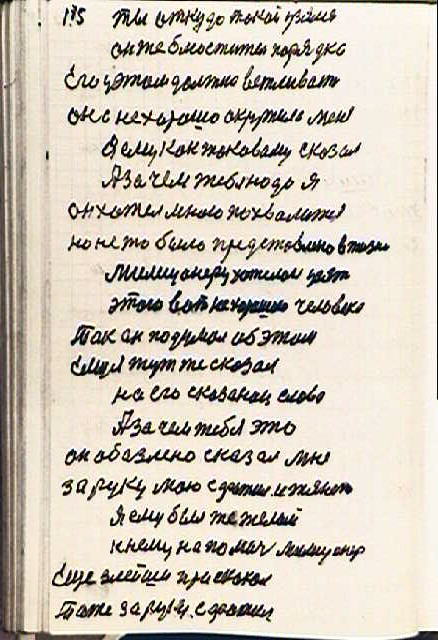 175 ты откудо такой грамо
он же блюститель порядка
Его этом должно ветливать
он с нехорошо окружель меня
Я ему как таковому сказал
А зачем тебя надо я
он хотел мною похвалится
но не то было представлено в жизни
милиционеру хотелось узять
этого вот нехорошего человека
Так он подумал об этом
Ему я тут же сказал
на его сказаной слово
А зачем тебя это
он обазлено сказал мне
за руку мою сдотал и тянеть
Я ему был тяжелай
к нему на помоч милиционер
Еще злейши прискокал
Тоже за руку